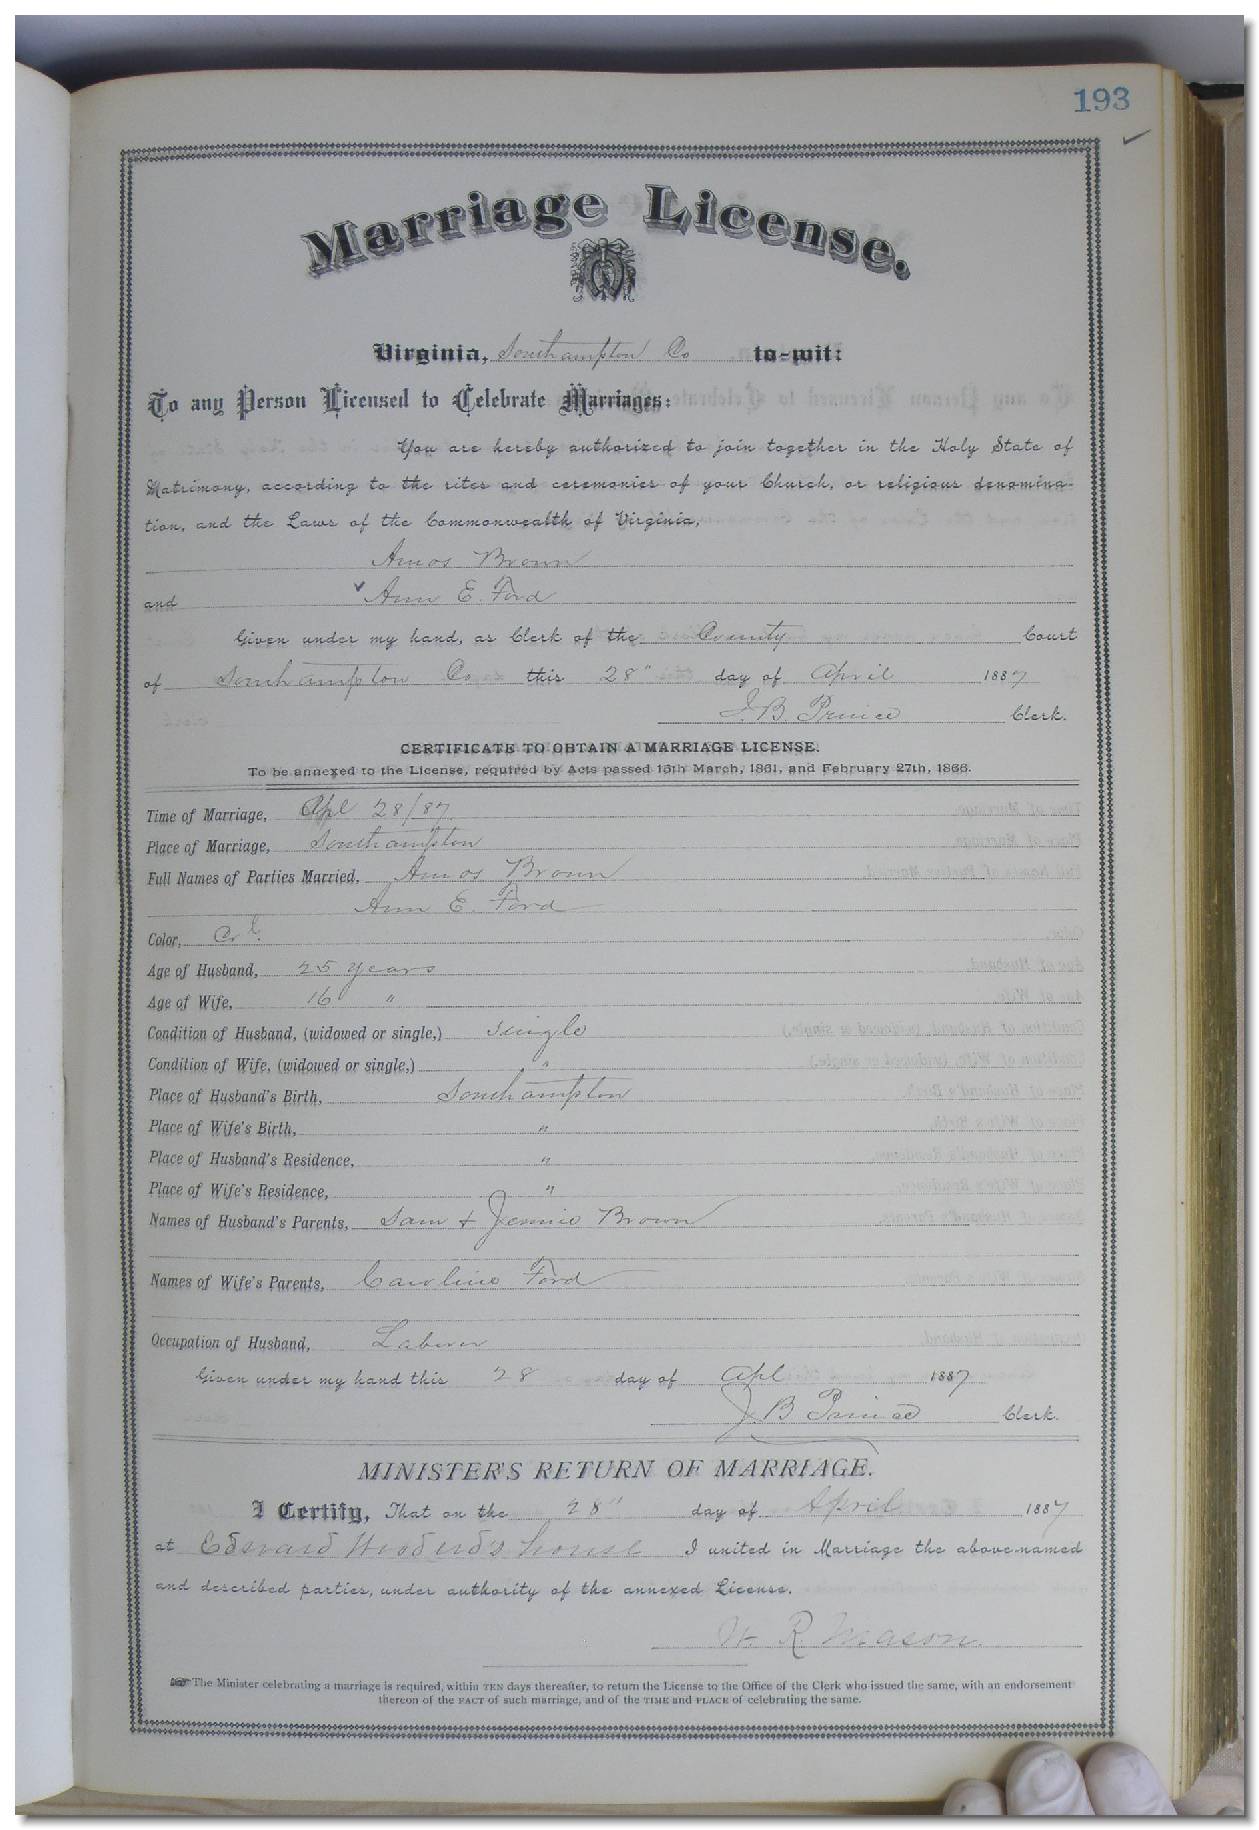 193
Marriage License.
Virginia, Southampton Co to-wit:
To any Person Licensed to Celebrate Marriages:
You are hereby authorized to join together in the Holy State of
Matrimony, according to the rites and ceremonies of your Church, or religious denomina-
tion, and the Laws of the Commonwealth of Virginia,
Amos Brown
and Ann E. Ford
Given under my hand, as Clerk of the County Court
of Southampton Co this 28" day of April 1887
J. B. Prince Clerk.
CERTIFICATE TO OBTAIN A MARRIAGE LICENSE.
To be annexed to the License, required by Acts passed 15th March, 1861, and February 27th, 1866.
Time of Marriage, Apl 28/87.
Place of Marriage, Southampton
Full Names of Parties Married, Amos Brown
Ann E. Ford
Color, Col.
Age of Husband, 25 years
Age of Wife, 16 "
Condition of Husband, (widowed or single,) single
Condition of Wife, (widowed or single,) "
Place of Husband's Birth, Southampton
Place of Wife's Birth, "
Place of Husband's Residence, "
Place of Wife's Residence, "
Names of Husband's Parents, Sam + Jennie Brown
Names of Wife's Parents, Caroline Ford
Occupation of Husband, Laborer
Given under my hand this 28 day of Apl 1887
J. B. Prince Clerk.
MINISTER'S RETURN OF MARRIAGE.
I Certify, That on the 28" day of April 1887
at Edward house I united in Marriage the above-named
and described parties, under authority of the annexed License.
W. R. Mason.
The Minister celebrating a marriage is required, within TEN days thereafter, to return the License to the Office of the Clerk who issued the same, with an endorsement
thereon of the FACT of such marriage, and of the TIME and PLACE of celebrating the same.